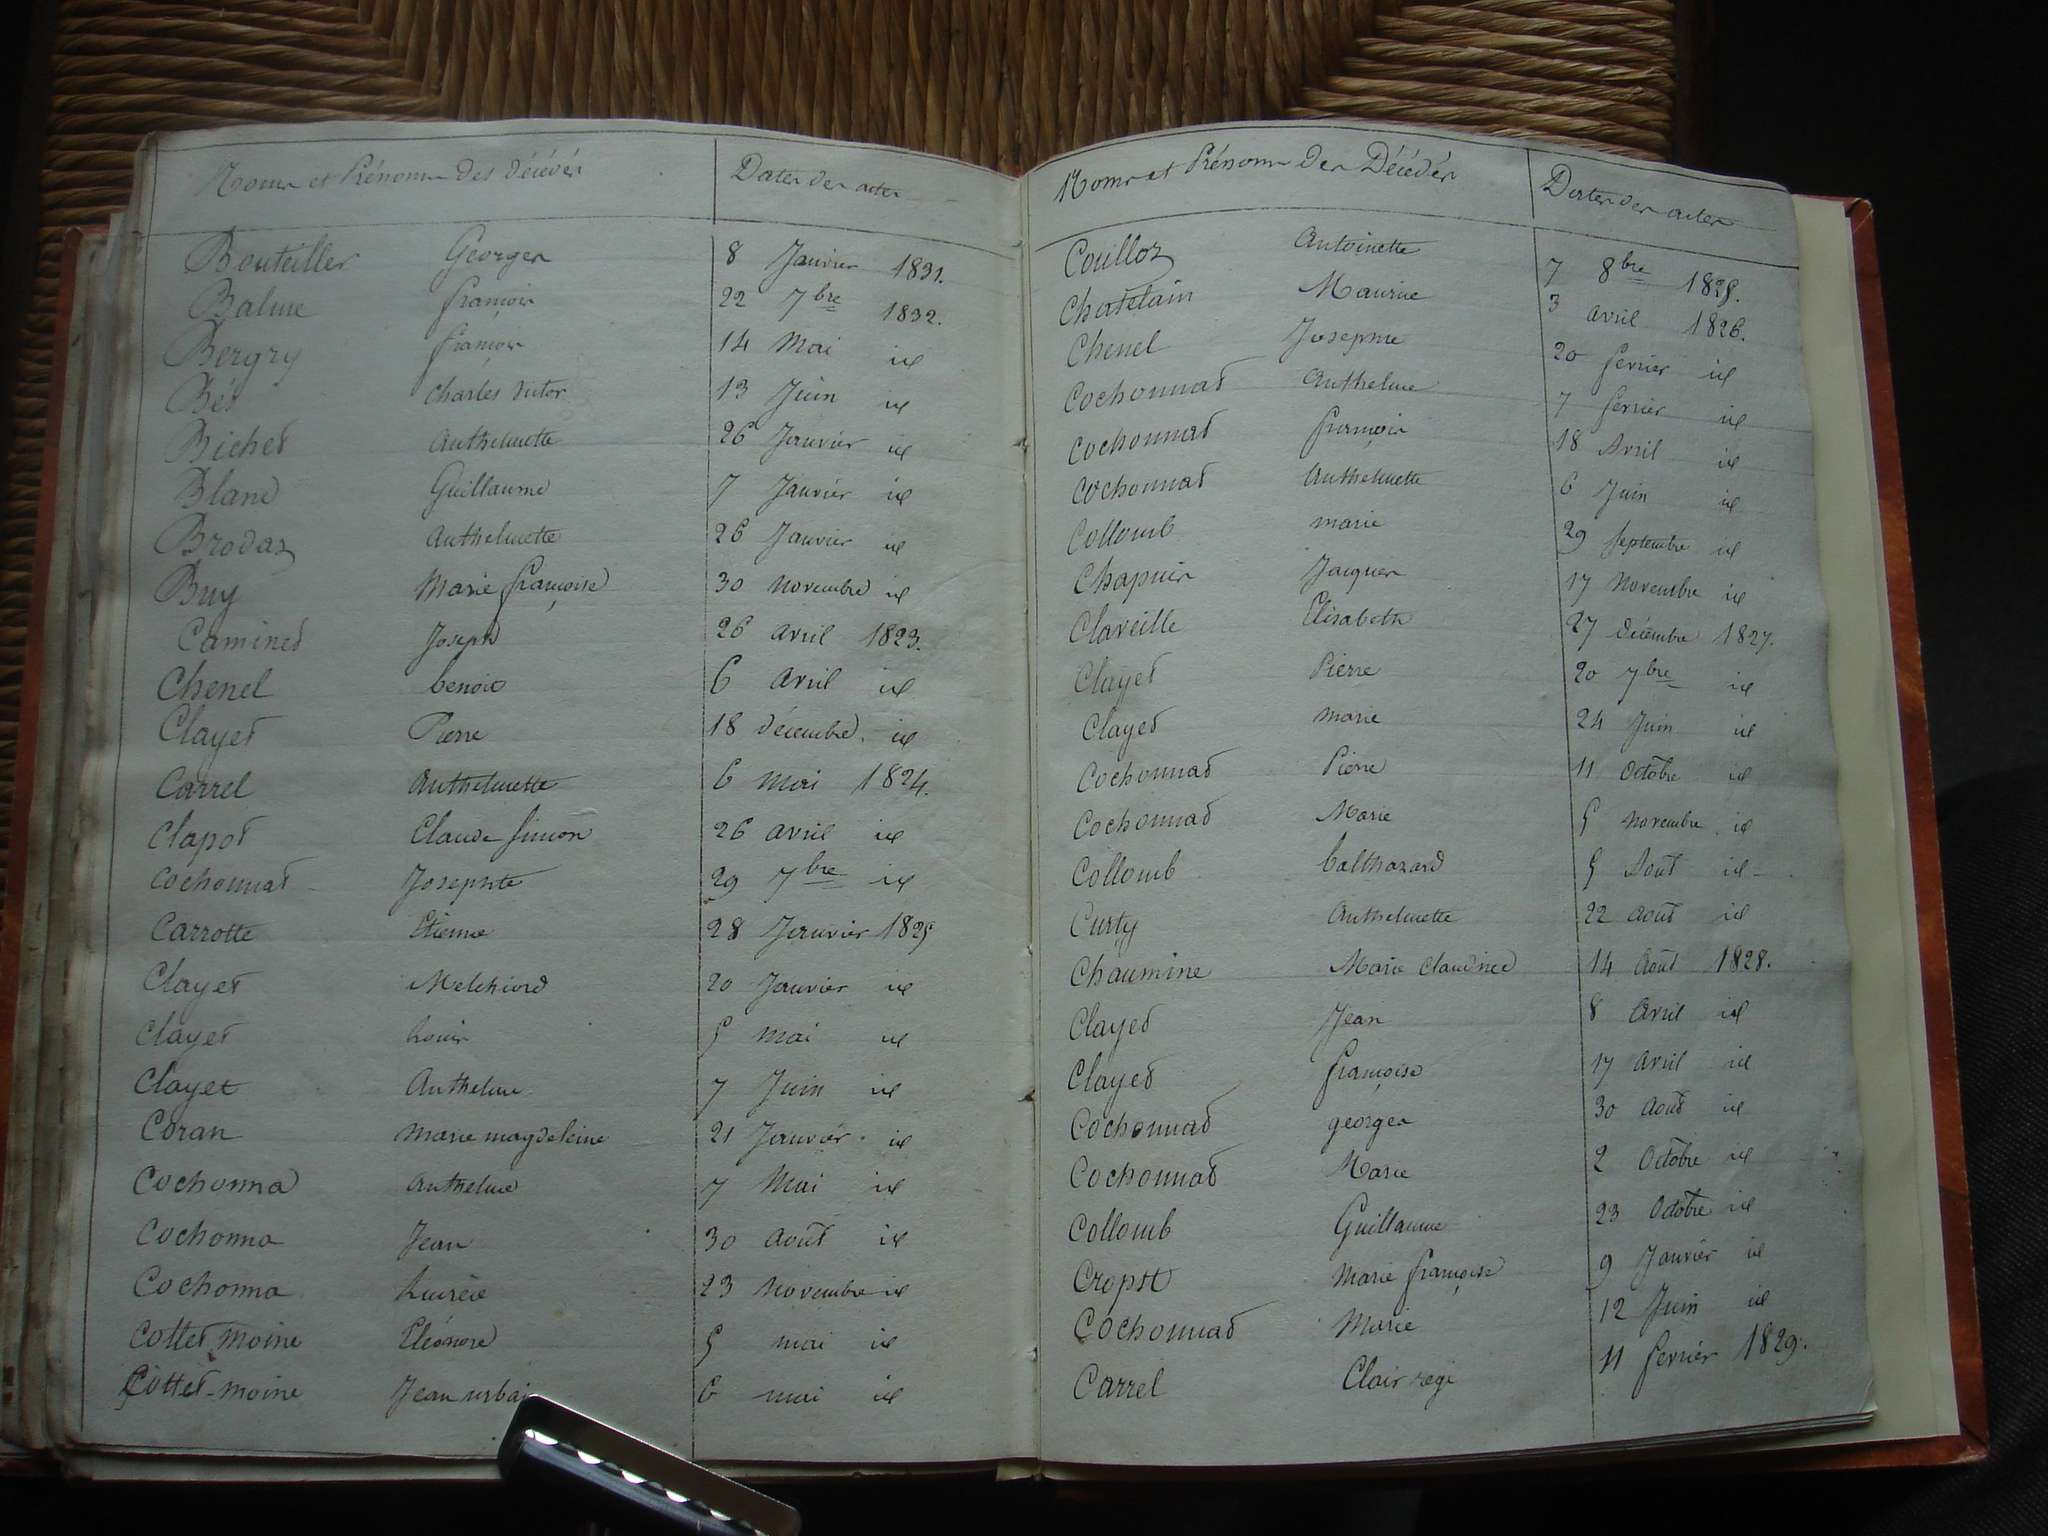 Noms et Prénoms des décédés Dates des actes
Bouteiller Georges 8 Janvier 1831.
Balme françois 22 7bre 1832.
Bergry françois 14 Mai id
Bés charles victor 13 Juin id
Bichet Anthelmette 26 Janvier id
Blanc Guillaume 7 Janvier id
Brodaz Anthelmette 26 Janvier id
Buy Marie françoise 30 novembre id
Caminet Joseph 26 avril 1823.
Chenel benoit 6 avril id
Clayet Pierre 18 décembre. id
Carrel Anthelmette 6 mai 1824.
Clapot Claude Simon 26 avril id
Cochonnat Josephte 29 7bre id
Carrotte Etienne 28 Janvier 1825
Clayet Melchiord 20 Janvier id
Clayet Louis 5 mai id
Clayet Anthelme 7 Juin id
Coran marie magdeleine 21 Janvier id
Cochonna Anthelme 7 Mai id
Cochonna Jean 30 août id
Cochonna 23 novembre id
Cottet moine Eléonore 5 mai id
Cottet-moine Jean urbai 6 mai id
Noms et Prénoms des Décédés Dates des actes
Couilloz Antoinette 7 8bre 1825.
Chatelain Maurice 3 avril 1826.
Chenel Josephte 20 fevrier id
Cochonnat Anthelme 7 fevrier id
Cochonnat françois 18 Avril id
Cochonnat Anthelmette 6 Juin id
Collomb marie 29 Septembre id
Chapuis Jacques 17 novembre id
Claveille Elisabeth 27 décembre 1827.
Clayet Pierre 20 7bre id
Clayet marie 24 Juin id
Cochonnat Pierre 11 Octobre id
Cochonnat Marie 5 novembre id
Collomb balthazard 5 Aout id
Curty Anthelmette 22 août id
Chaumine Marie Claudine 14 Août 1828.
Clayet Jean 8 Avril id
Clayet françoise 17 avril id
Cochonnat georges 30 août id
Cochonnat Marie 2 Octobre id
Collomb Guillaume 23 Octobre id
Cropst Marie françoise 9 Janvier id
Cochonnat Marie 12 Juin id
Carrel Clair regi 11 fevrier 1829.